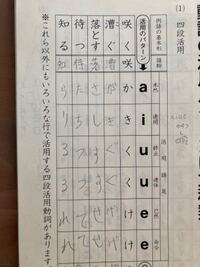 (1) 四段活用
例語の基本形 語幹 未然 連用 終止 連体 已然 命令
活用語尾
活用のパターン a i u u e e
咲く 咲 か き く く け け
漕ぐ 漕 が ぎ ぐ ぐ げ げ
落とす 落と さ し す す せ せ
待つ 待 た ち つ つ て て
知る 知 ら り る る れ れ
※これら以外にもいろいろな行で活用する四段活用動詞があります